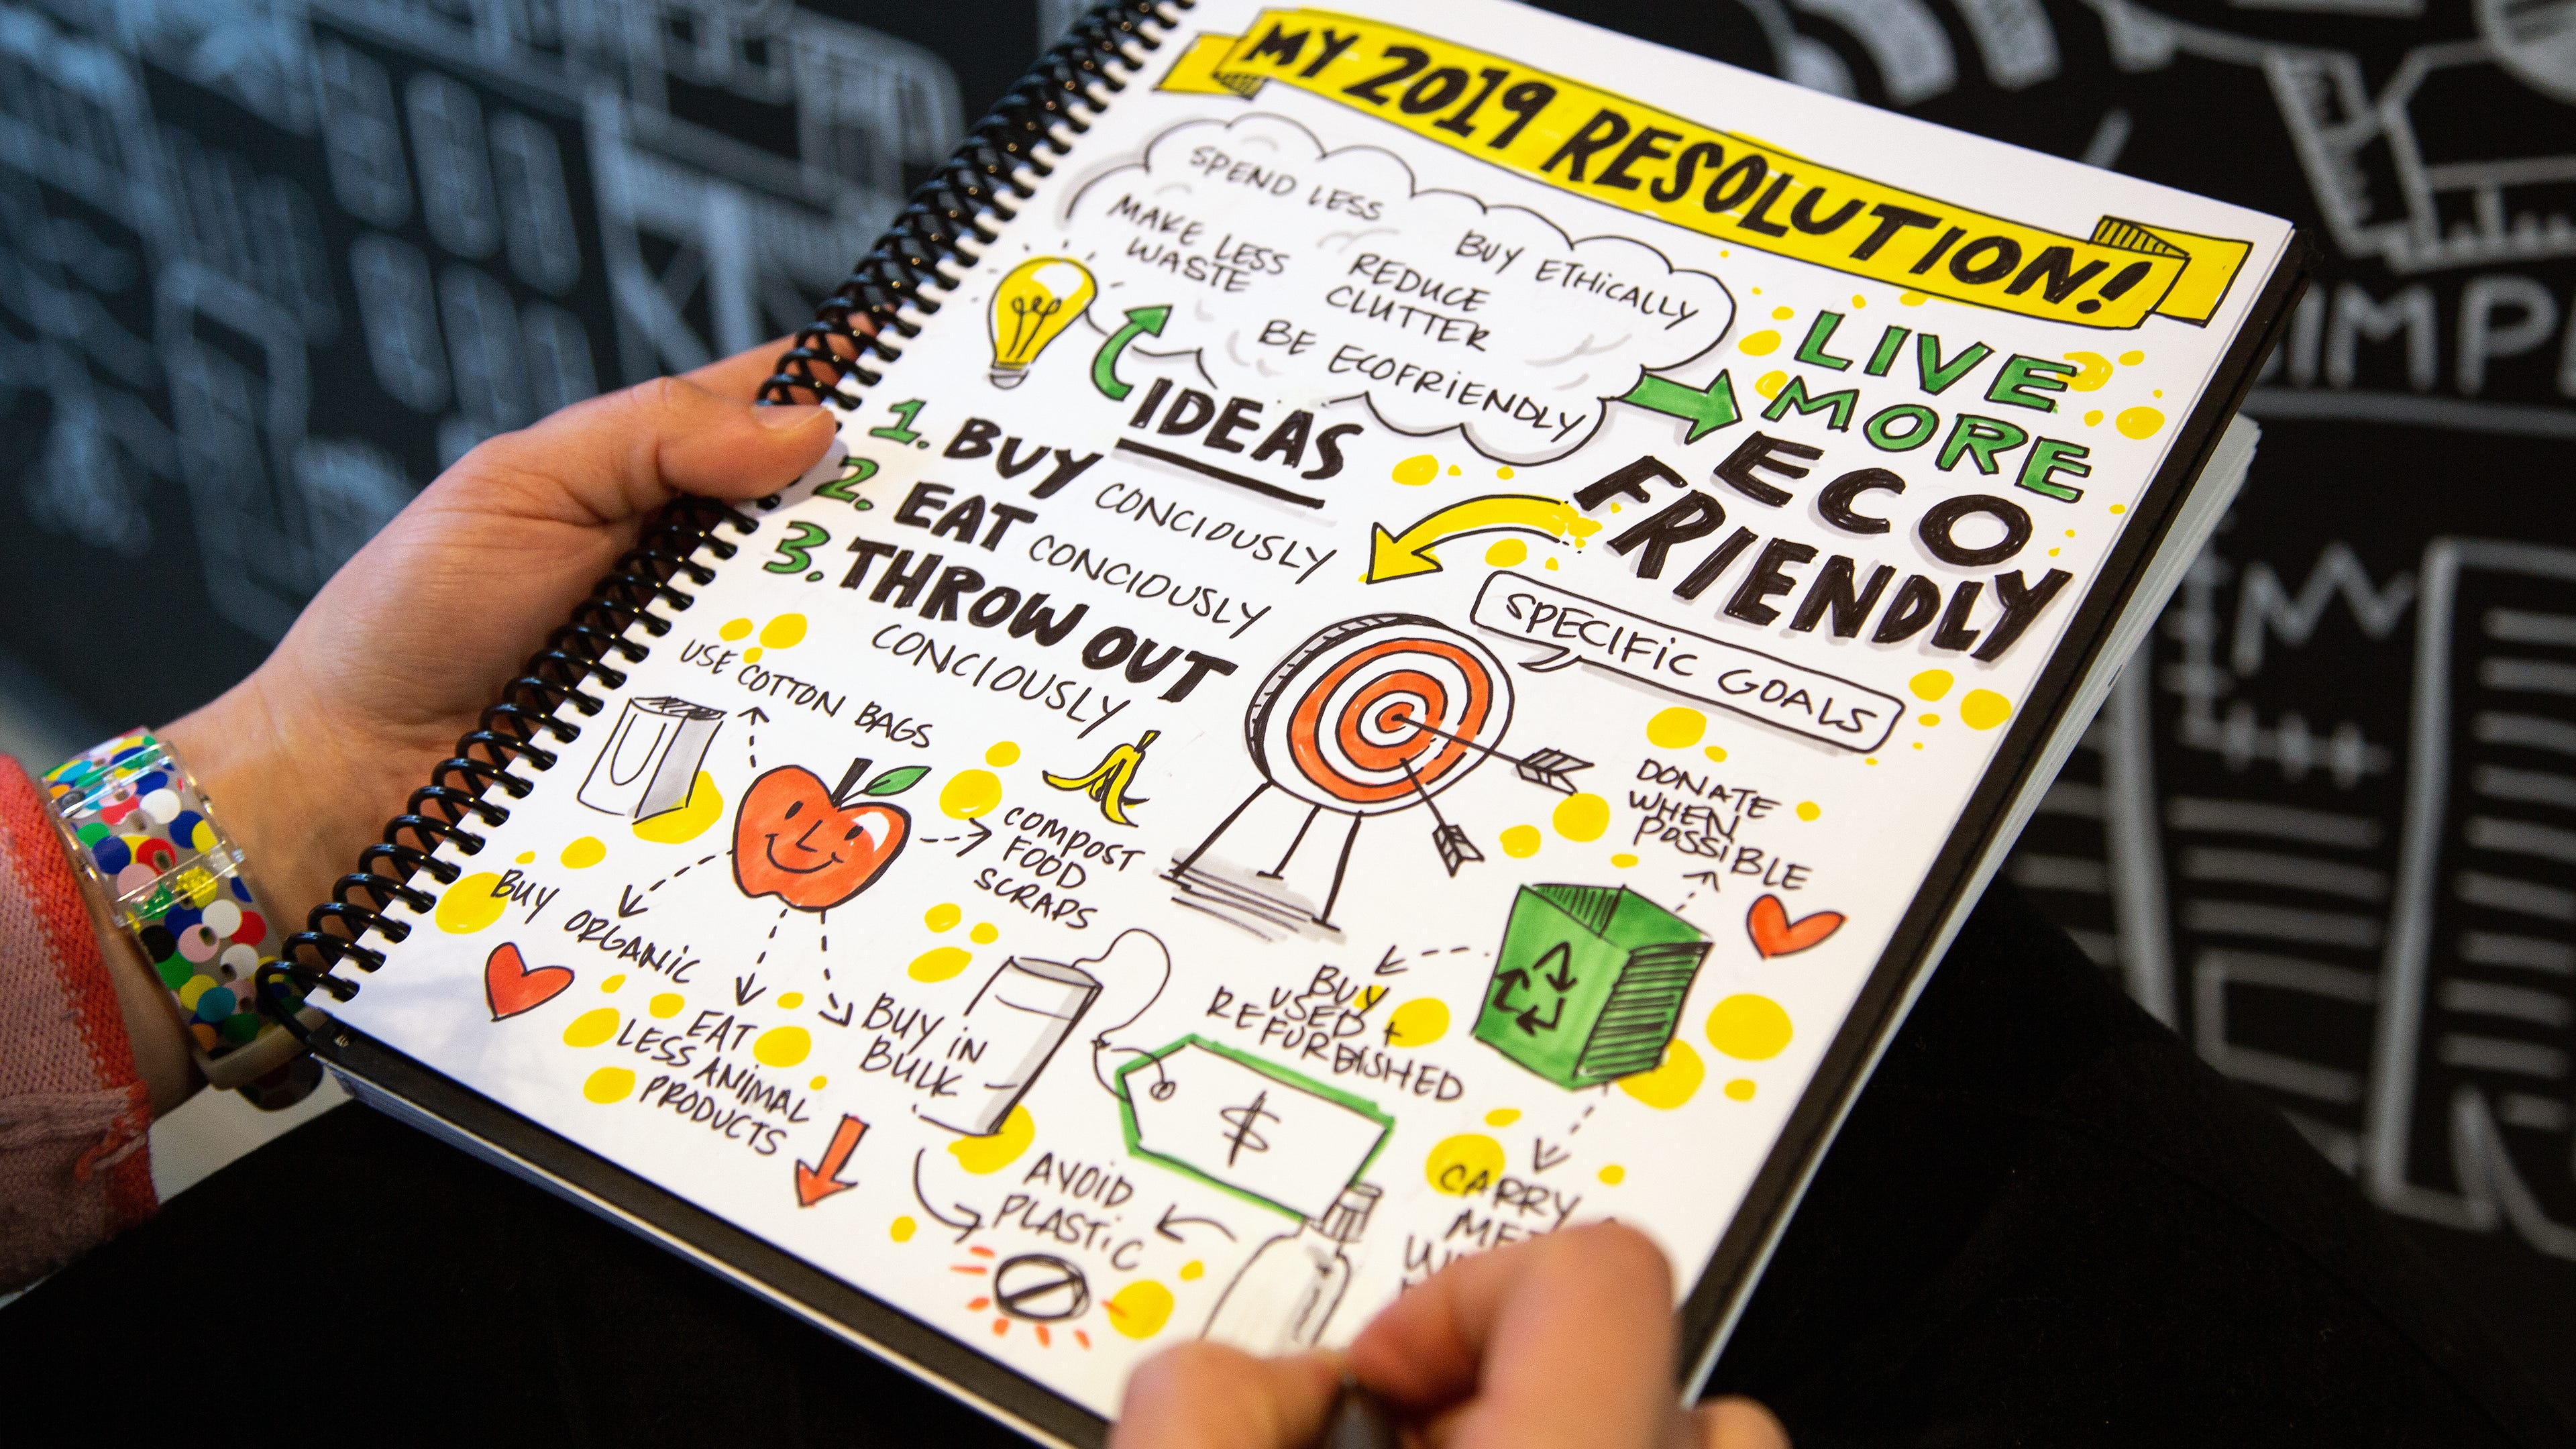 MY 2019 RESOLUTION!
SPEND LESS
MAKE LESS
WASTE
REDUCE
CLUTTER
BUY ETHICALLY
BE ECOFRIENDLY
LIVE
MORE
ECO
FRIENDLY
IDEAS
1. BUY CONCIOUSLY
2. EAT CONCIOUSLY
3. THROW OUT
CONCIOUSLY
SPECIFIC GOALS
USE COTTON BAGS
COMPOST
FOOD
SCRAPS
BUY ORGANIC
EAT
LESS ANIMAL
PRODUCTS
BUY IN
BULK
DONATE
WHEN
POSSIBLE
BUY
USED +
REFURBISHED
$
AVOID
PLASTIC
CARRY